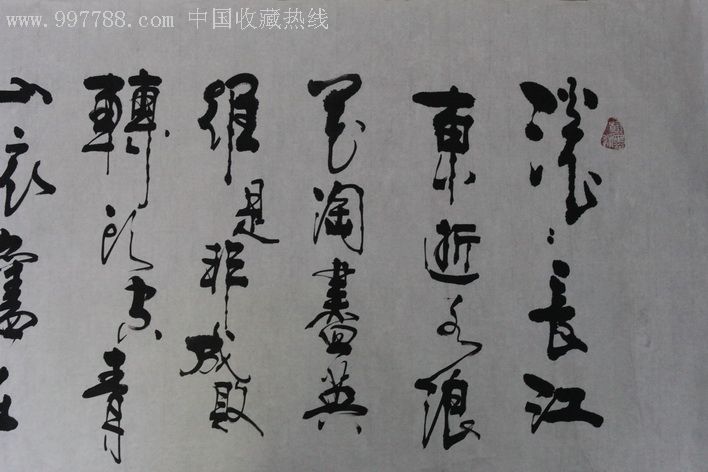 www.997788.com 中国收藏热线
滚〻長江
東逝水浪
花淘盡英
雄是非成敗
轉頭空青
山依舊在